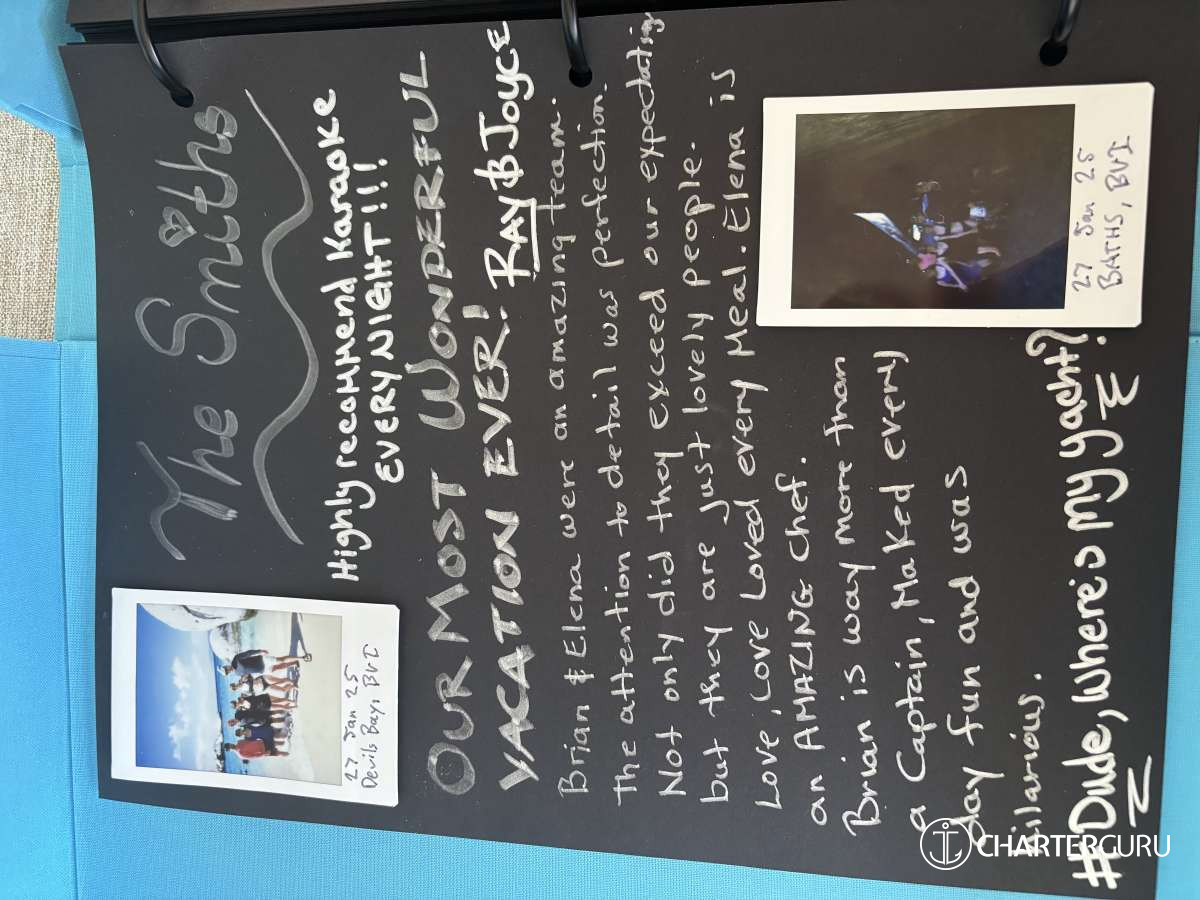 The Smiths
Highly recommend Karaoke
EVERY NIGHT!!!
27 Jan 25
Devils Bay, BVI
OUR MOST WONDERFUL
VACATION EVER! RAY & JOYCE
Brian & Elena were an amazing team.
The attention to detail was perfection.
Not only did they exceed our expectations
but they are just lovely people.
Love, Love Loved every meal. Elena is
an AMAZING chef.
Brian is way more than
a Captain, Maked every
day fun and was
hilarious.
27 Jan 25
BATHS, BVI
#Dude, where's my yacht?
CHARTERGURU